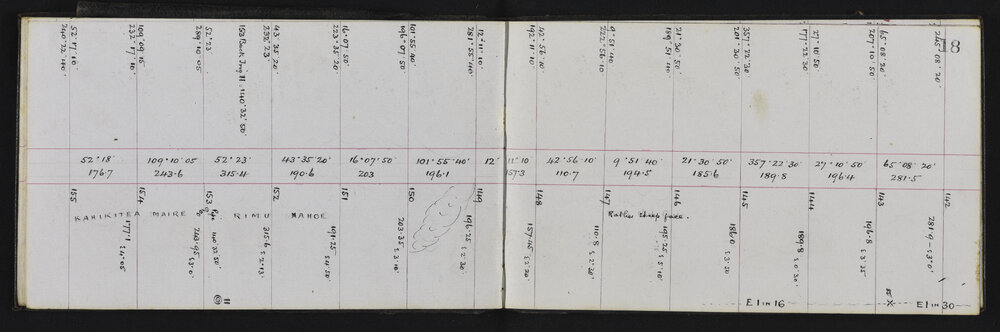 52° 17' 10"
240° 22' 40"
109° 09' 15"
232° 17' 10"
52° 23'
289° 10' 05"
43° 35' 20"
232° 23'
16° 07' 50"
223° 35' 20"
101° 55' 40"
196° 07' 50"
12° 11' 10"
281° 55' 40"
42° 56' 10"
192° 11' 10"
9° 51' 40"
222° 56' 10"
21° 30' 50"
189° 51' 40"
357° 22' 30"
201° 30' 50"
27° 10' 50"
177° 22' 30"
65° 08' 20"
207° 10' 50"
245° 08' 20"
18
52° 18' 109° 10' 05 52° 23' 43° 35' 20" 16° 07' 50" 101° 55' 40" 12° 11' 10 42° 56' 10" 9° 51' 40" 21° 30' 50" 357° 22' 30" 27° 10' 50" 65° 08' 20"
176.7 243.6 315.4 190.6 203 196.1 157.3 110.7 194.5 185.6 189.8 196.4 281.5
155 154 153 152 151 150 149 148 147 146 145 144 143 142
KAHIKITEA MAIRE RIMU MAHOE
Rather steep face.
177.1 ξ 4° 05'
243.95 ξ 3° 0'
315.6 ξ 2° 13'
191.25 ξ 4° 50'
203.35 ξ 3° 10'
196.25 ξ 2° 30'
157.45 ξ 2° 20'
110.8 ξ 2° 30'
195.25 ξ 5° 10'
186.0 ξ 3° 50'
189.81 ξ 0° 30'
196.8 ξ 3° 35'
281.9 - ξ 3° 0'
11
E 1 in 16
E 1 in 30